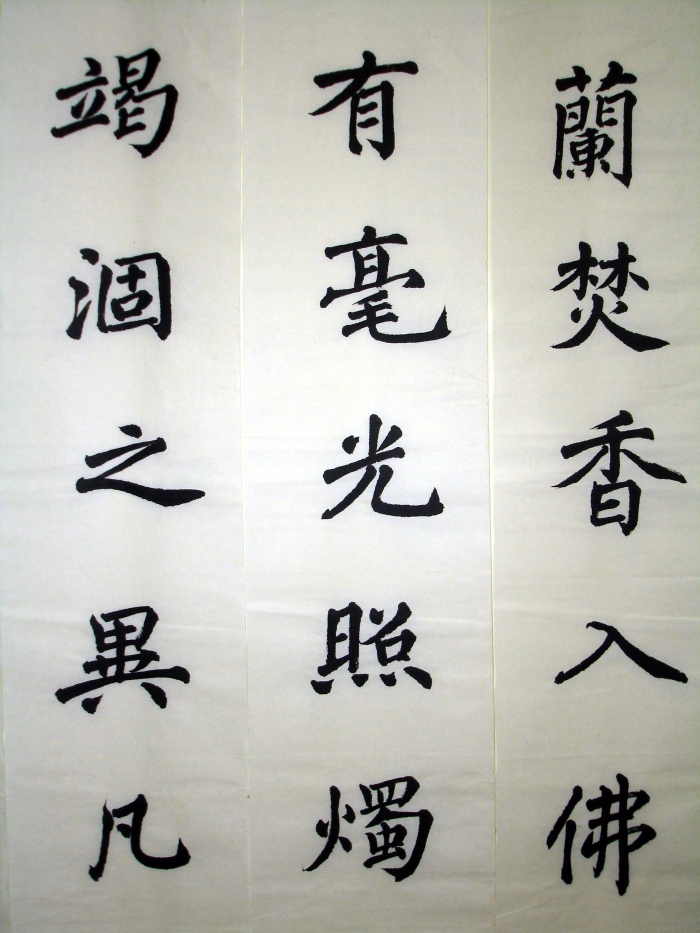 蘭焚香入佛
有毫光照燭
竭涸之異凡